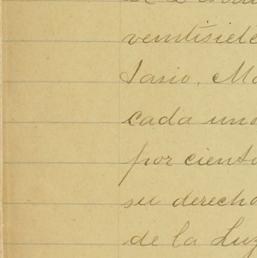 veintisiete
sario, Ma
cada uno
por ciento
su derecho
de la Luz